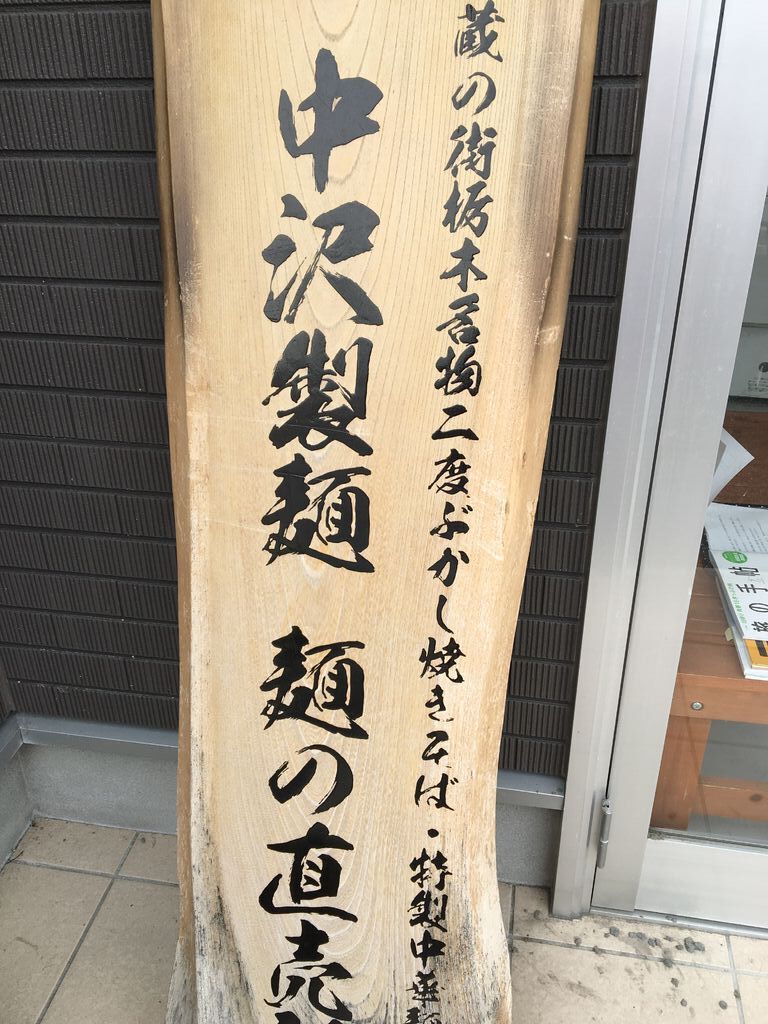 蔵の街栃木名物二度ぶかし焼きそば・特製中華麺
中沢製麺 麺の直売
旅の手帖